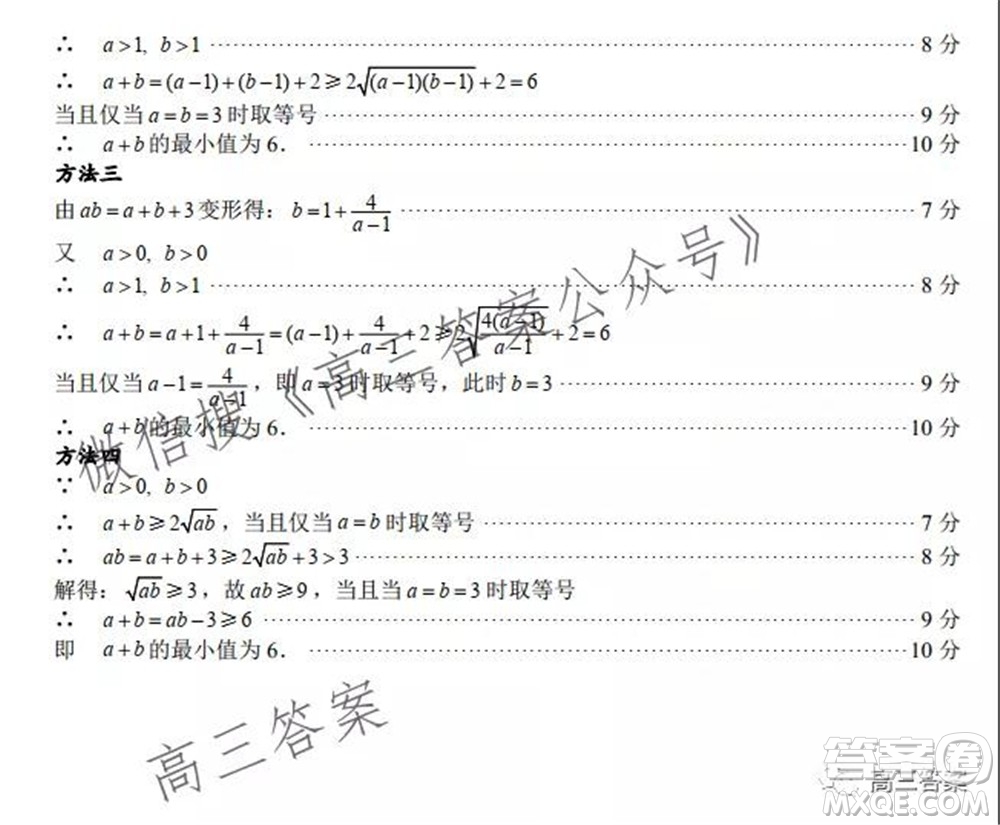 ∴ a>1, b>1 ……………… 8 分
∴ a+b=(a−1)+(b−1)+2≥2√(a−1)(b−1)+2=6
当且仅当 a=b=3 时取等号 ……………… 9 分
∴ a+b 的最小值为 6. ……………… 10 分
方法三
由 ab=a+b+3 变形得：b=1+4/(a−1) ……………… 7 分
又 a>0, b>0
∴ a>1, b>1 ……………… 8 分
∴ a+b=a+1+4/(a−1)=(a−1)+4/(a−1)+2≥2√(4(a−1)/(a−1))+2=6
当且仅当 a−1=4/(a−1)，即 a=3 时取等号，此时 b=3 ……………… 9 分
∴ a+b 的最小值为 6. ……………… 10 分
方法四
∵ a>0, b>0
∴ a+b≥2√ab，当且仅当 a=b 时取等号 ……………… 7 分
∴ ab=a+b+3≥2√ab+3>3 ……………… 8 分
解得：√ab≥3，故 ab≥9，当且当 a=b=3 时取等号
∴ a+b=ab−3≥6 ……………… 9 分
即 a+b 的最小值为 6. ……………… 10 分
微信搜《高三答案公众号》
高三答案
答案圈
高三答案
MXQE.COM